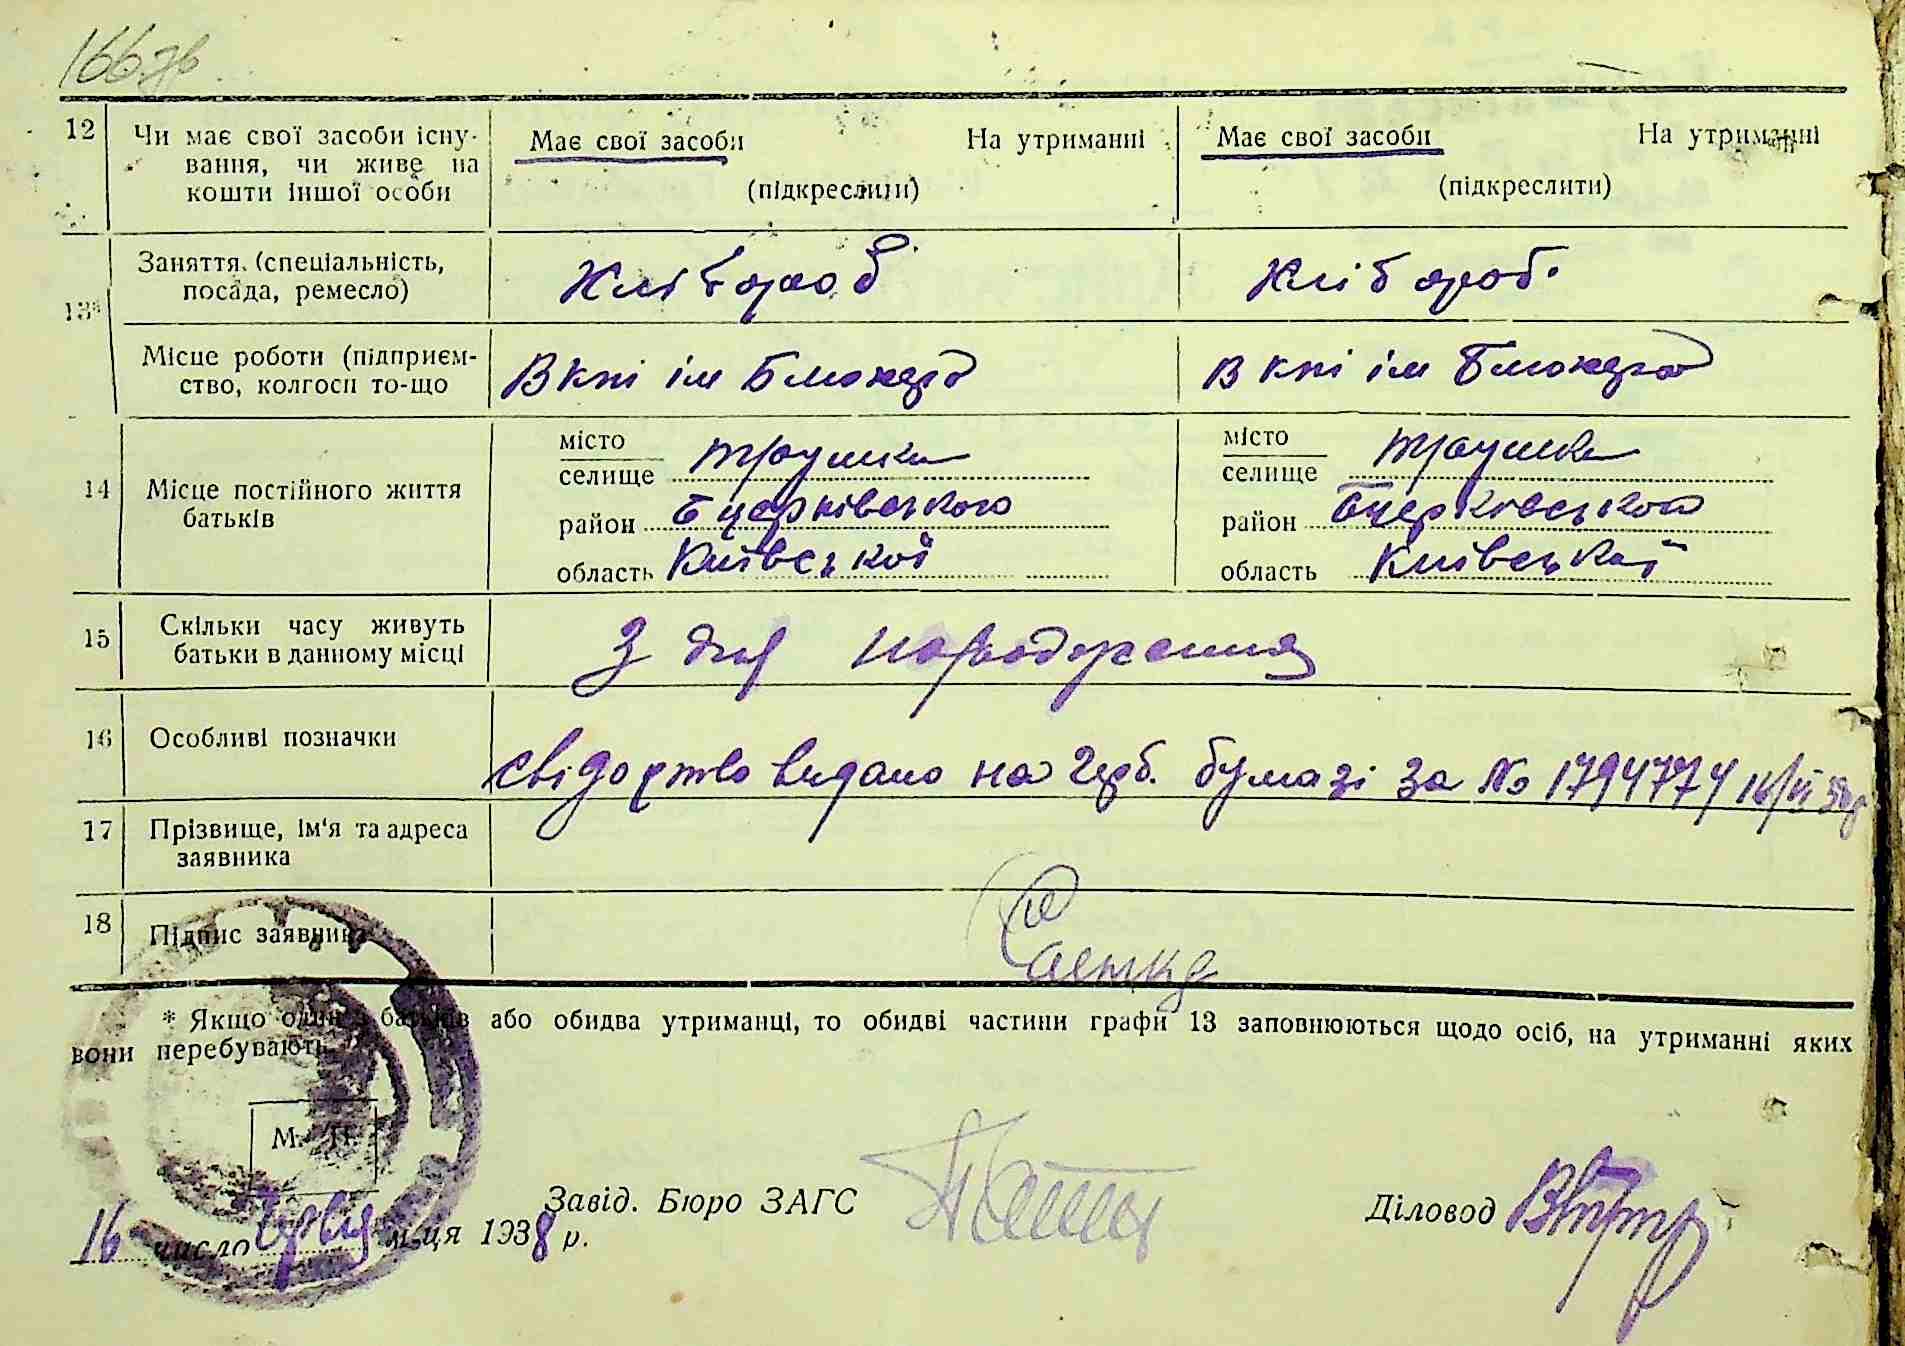 166 зв
12 Чи має свої засоби існу-
вання, чи живе на
кошти іншої особи
Має свої засоби На утриманні
(підкреслити)
Має свої засоби На утриманні
(підкреслити)
13*
Заняття (спеціальність,
посада, ремесло)
Хлібороб
Хлібороб
Місце роботи (підприєм-
ство, колгосп то-що
В кпі ім Блюхера
В кпі ім Блюхера
14 Місце постійного життя
батьків
місто
селище Трушки
район Бцерківського
область Київської
місто
селище Трушки
район Бцерковського
область Київської
15 Скільки часу живуть
батьки в данному місці
З дня народження
16 Особливі позначки
свідоцтво видано на герб. бумазі за № 1794774 16/VI 38р
17 Прізвище, ім'я та адреса
заявника
18 Підпис заявника
* Якщо один з батьків або обидва утриманці, то обидві частини графи 13 заповнюються щодо осіб, на утриманні яких
вони перебувають.
М. П.
Завід. Бюро ЗАГС
Діловод
16 число Червня м-ця 1938 р.